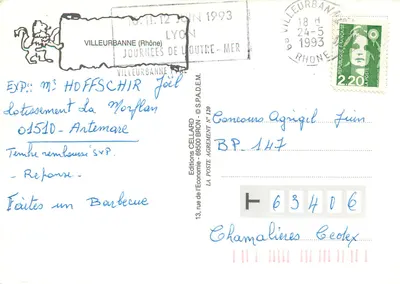 10.11.12 JUIN 1993
LYON
JOURNÉES DE L'OUTRE-MER
VILLEURBANNE
VILLEURBANNE (Rhône)
VILLEURBANNE
18 H
24-5
1993
RHONE
2,20
EXP: Mr HOFFSCHIR Joël
lotissement du Morflan
01510 - Artemare
Timbre remboursé SVP.
- Reponse.
Faites un Barbecue
Editions CELLARD
13, rue de l'Economie - 69500 BRON - © S.P.A.D.E.M.
LA POSTE AGREMENT N° 129
Concours Agrigel Juin
BP. 147
63406
Chamalieres Cedex